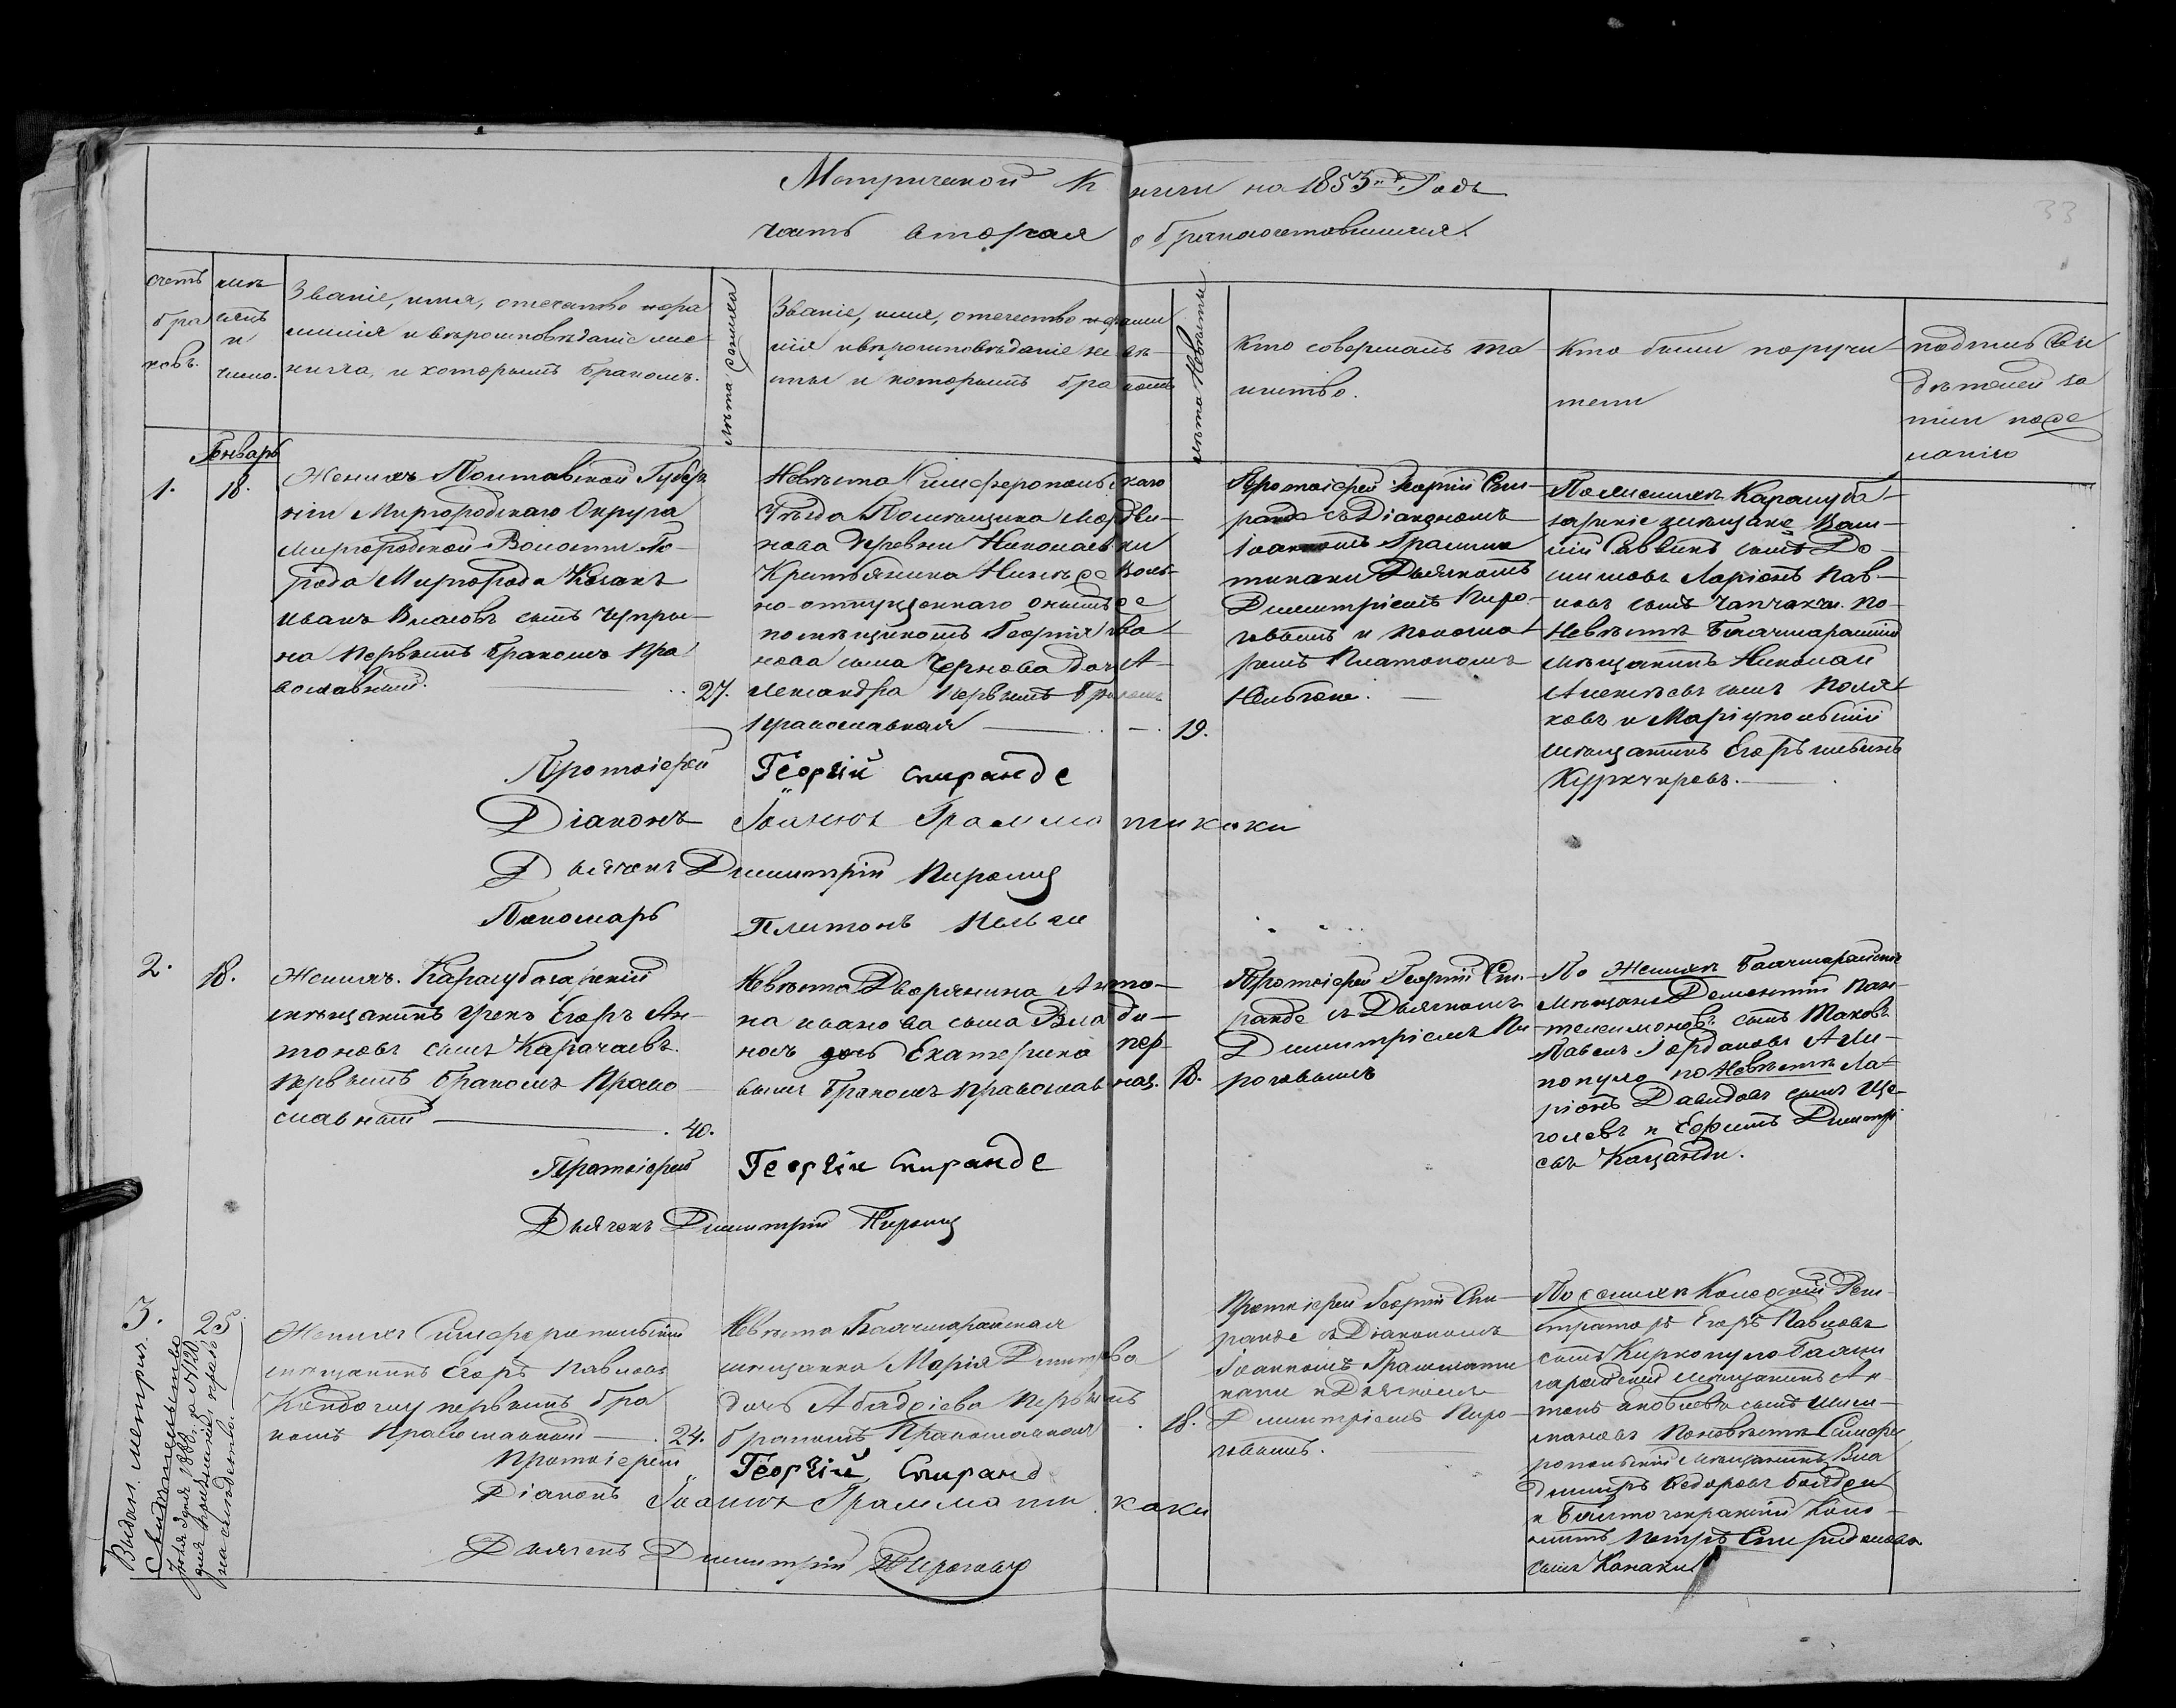 Метрической Книги на 1853й Годъ
часть вторая о бракосочетавшихся
33
счетъ браковъ.
мѣсяцъ и число.
Званіе, имя, отечество и фамилія и вѣроисповѣданіе жениха, и которымъ бракомъ.
лѣта жениха
Званіе, имя, отечество и фамилія и вѣроисповѣданіе невѣсты и которымъ бракомъ
лѣта невѣсты
Кто совершалъ таинство.
Кто были поручители
подпись свидѣтелей записи по желанію
Генварь
1.
18.
Женихъ Полтавской Губер
ніи Миргородскаго Округа
Миргородской Волости Го-
рода Миргорода Козакъ
Иванъ Власовъ сынъ Чупри-
на первымъ бракомъ Пра
вославный.
27.
Невѣста Симферопольскаго
Уѣзда Помѣщика Мордви-
нова Деревни Николаевки
Крестьянина Нинѣ же Воль-
но-отпущеннаго онымъ же
помѣщикомъ Георгія Ива
нова сына Чернова дочь А-
лександра первымъ бракомъ
православная
19.
Протоіерей Георгій Спи-
ранде съ Діакономъ
Іоанномъ Грамма
тикаки Дьячкомъ
Димитріемъ Пиро-
говымъ и Понома
ремъ Платономъ
По женихѣ Карасуба-
зарскіе мѣщане Васи-
лій Саввинъ сынъ
Ларіонъ Пав-
ловъ сынъ По
Невѣстѣ Бахчисарайскій
мѣщанинъ Николай
Алексѣевъ сынъ Поля
ковъ и Маріупольскій
мѣщанинъ Егоръ
Протоіерей Георгій Спиранде
Діаконъ Іоаннъ Грамматикаки
Дьячекъ Димитрій Пироговъ
Пономарь Платонъ
2.
18.
Женихъ Карасубазарскій
мѣщанинъ грекъ Егоръ Ан-
тоновъ сынъ Карачаевъ
первымъ бракомъ Право
славный
40.
Невѣста Дворянина Анто-
на Иванова сына
дочь Екатерина пер
вымъ бракомъ православная.
18.
Протоіерей Георгій Спи-
ранде съ Дьячкомъ
Димитріемъ Пи-
роговымъ
По Женихѣ Бахчисарайскіе
мѣщане Дементій Пан-
телеимоновъ сынъ
Павелъ Іордановъ
по Невѣстѣ Ла
ріонъ Давидовъ сынъ Ще-
голевъ и Ефимъ Димитрі
евъ
Протоіерей Георгій Спиранде
Дьячекъ Димитрій Пироговъ
3.
25.
Женихъ Симферопольскій
мѣщанинъ Егоръ Павловъ
первымъ бра
комъ Православный
24.
Невѣста Бахчисарайская
мѣщанка Марія Дмитрова
дочь первымъ
бракомъ Православная
18.
Протоіерей Георгій Спи-
ранде съ Діакономъ
Іоанномъ Граммати
каки и Дьячкомъ
Димитріемъ Пиро-
говымъ.
По женихѣ Коллежскій Реги-
страторъ Егоръ Павловъ
сынъ Киркопуло Бахчи
сарайскій мѣщанинъ Ан
тонъ Яковлевъ сынъ
По невѣстѣ Симферо
польскій мѣщанинъ Вла
диміръ Ѳедоровъ
и Коло-
нистъ Петръ Спиридоновъ
сынъ Канаки
Протоіерей Георгій Спиранде
Діаконъ Іоаннъ Грамматикаки
Дьячекъ Димитрій Пироговъ
Выдано метрич.
Свидѣтельство